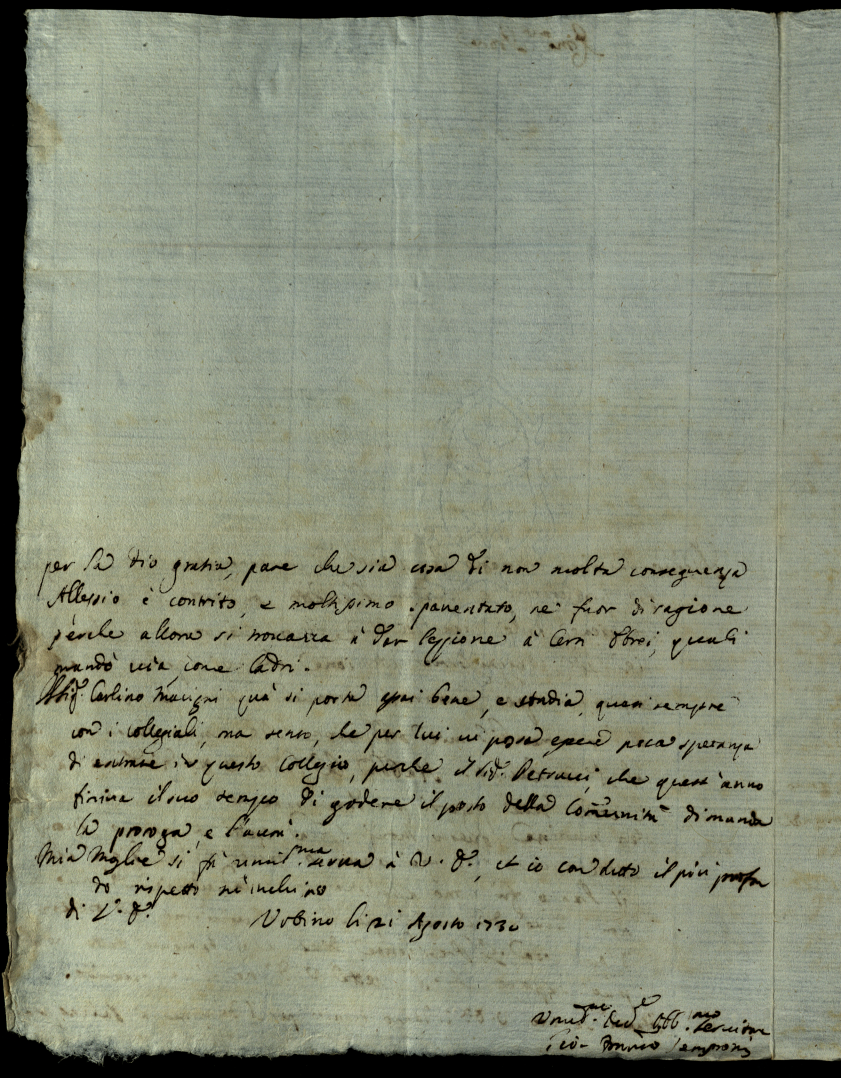 per la Dio gratia, pare che sia cosa di non molta conseguenza
Allessio è contrito, e moltissimo spaventato, ne fuor di ragione
perche allora si trovava à dar lezzione à certi Ebrei, quali
mandò via, come ladri.
Il Sig.r Carlino qua si porta assai bene, e studia, quasi sempre
con i collegiali, ma sento, che per lui vi possa essere poca speranza
di entrare in questo Collegio, perche il Sig.r Petrucci, che quest'anno
finiva il suo tempo di godere il posto della Communità dimanda
la proroga, e l'averà.
Mia Moglie si fà umil.ma serva à V. S., et io con tutto il più profon
do rispetto m'inchino
di V. S.
Urbino li 21 Agosto 1730
ed obb.mo servitore